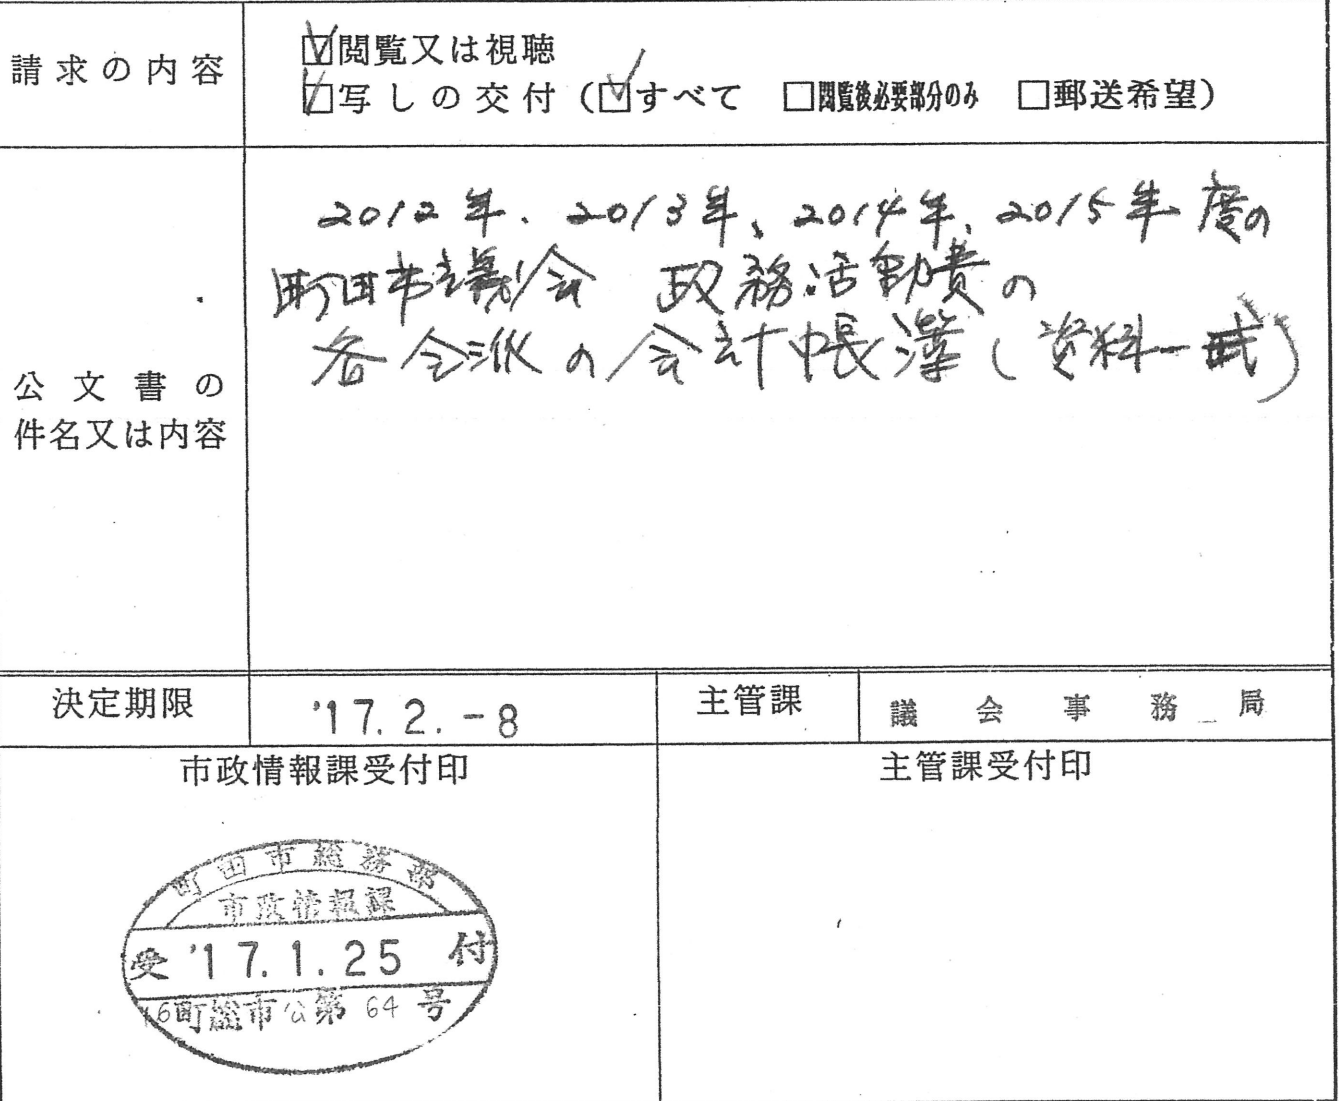 請求の内容
☑閲覧又は視聴
☑写しの交付（☑すべて □閲覧後必要部分のみ □郵送希望）
公文書の
件名又は内容
2012年、2013年、2014年、2015年度の
町田市議会 政務活動費の
各会派の会計帳簿（資料一式）
決定期限
'17.2.-8
主管課
議会事務局
市政情報課受付印
主管課受付印
町田市総務部
市政情報課
受 '17.1.25 付
16町総市公第64号